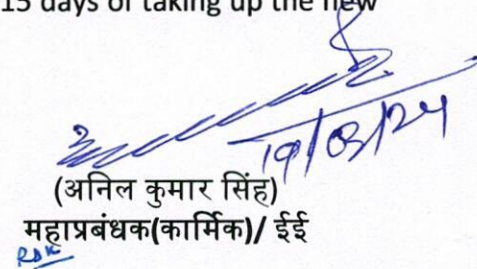 15 days of taking up the new
(अनिल कुमार सिंह)
महाप्रबंधक(कार्मिक)/ ईई